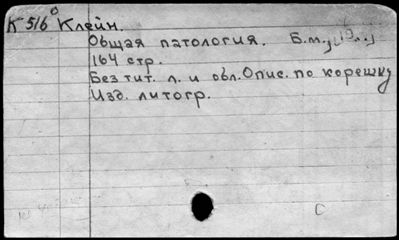 К 516 Клейн.
Общая патология. Б.м., 19..,
164 стр.
Без тит. л. и обл. Опис. по корешку
Изд. литогр.
С